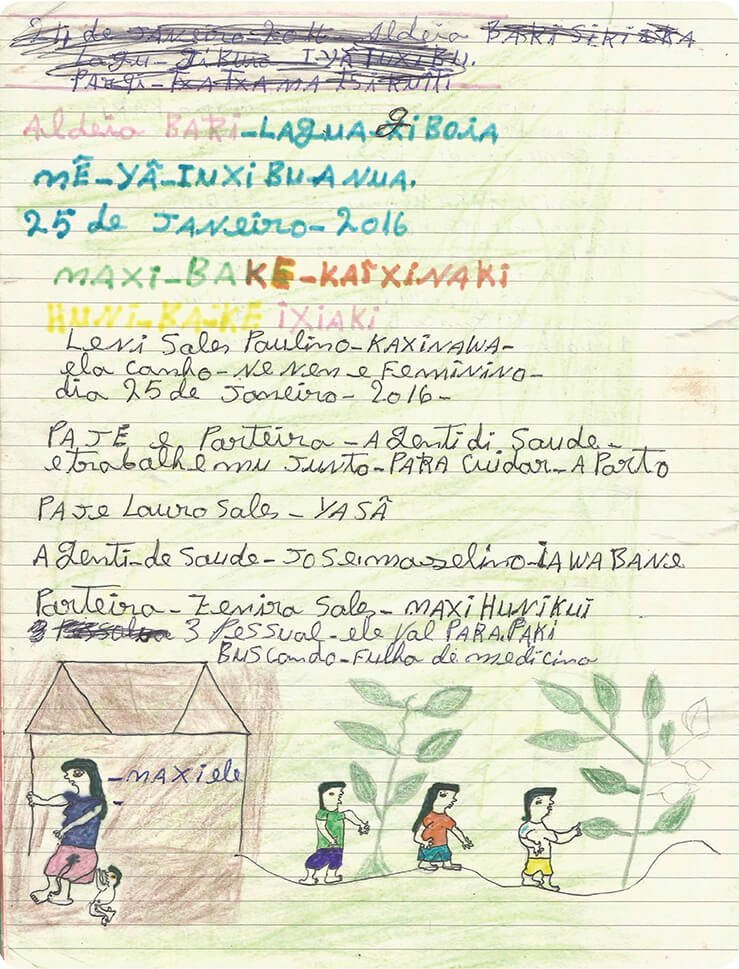 de JANEIRO-2011 Aldeia
Aldeia BARI-LAGUA-giBOiA
MÊ-YÂ-INXIBU-ANUA.
25 de JANEIRO-2016
MAXI-BAKE-KAIXINAKI
HUNI-BAKE IXIAKI
LENi Sales Paulino-KAXINAWA-
ela Canho-NENEN e FEMININO-
dia 25 de JANEIRO-2016-
PAJE e Parteira-AgENti di Saude-
etrabalhemu JUNto-PARA CUidAR-A PARto
PAJE LAURO Sales-YASÂ
Agenti-de Saude-JOSEmasselino-IAWA BANE
Parteira-ZENiRA Sales-MAXi HUNi KUi
3 PESSUAl-ele VAl PARA.PAKI
BUSCANdo-FUlhA de medicina
-MAXI ele